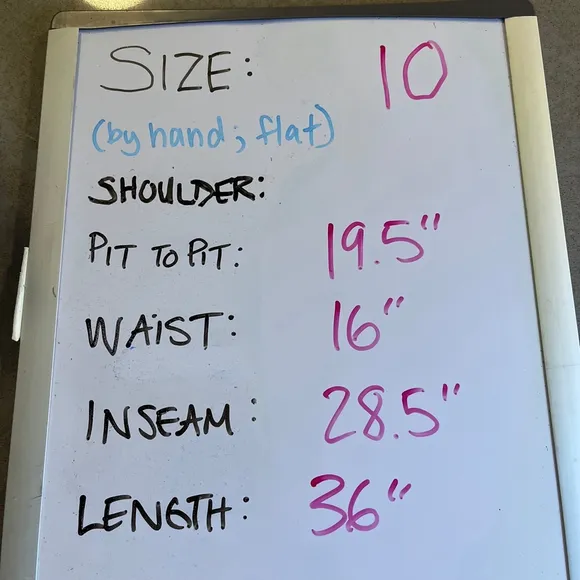 SIZE: 10
(by hand; flat)
SHOULDER:
PIT TO PIT: 19.5"
WAiST: 16"
INSEAM: 28.5"
LENGTH: 36"